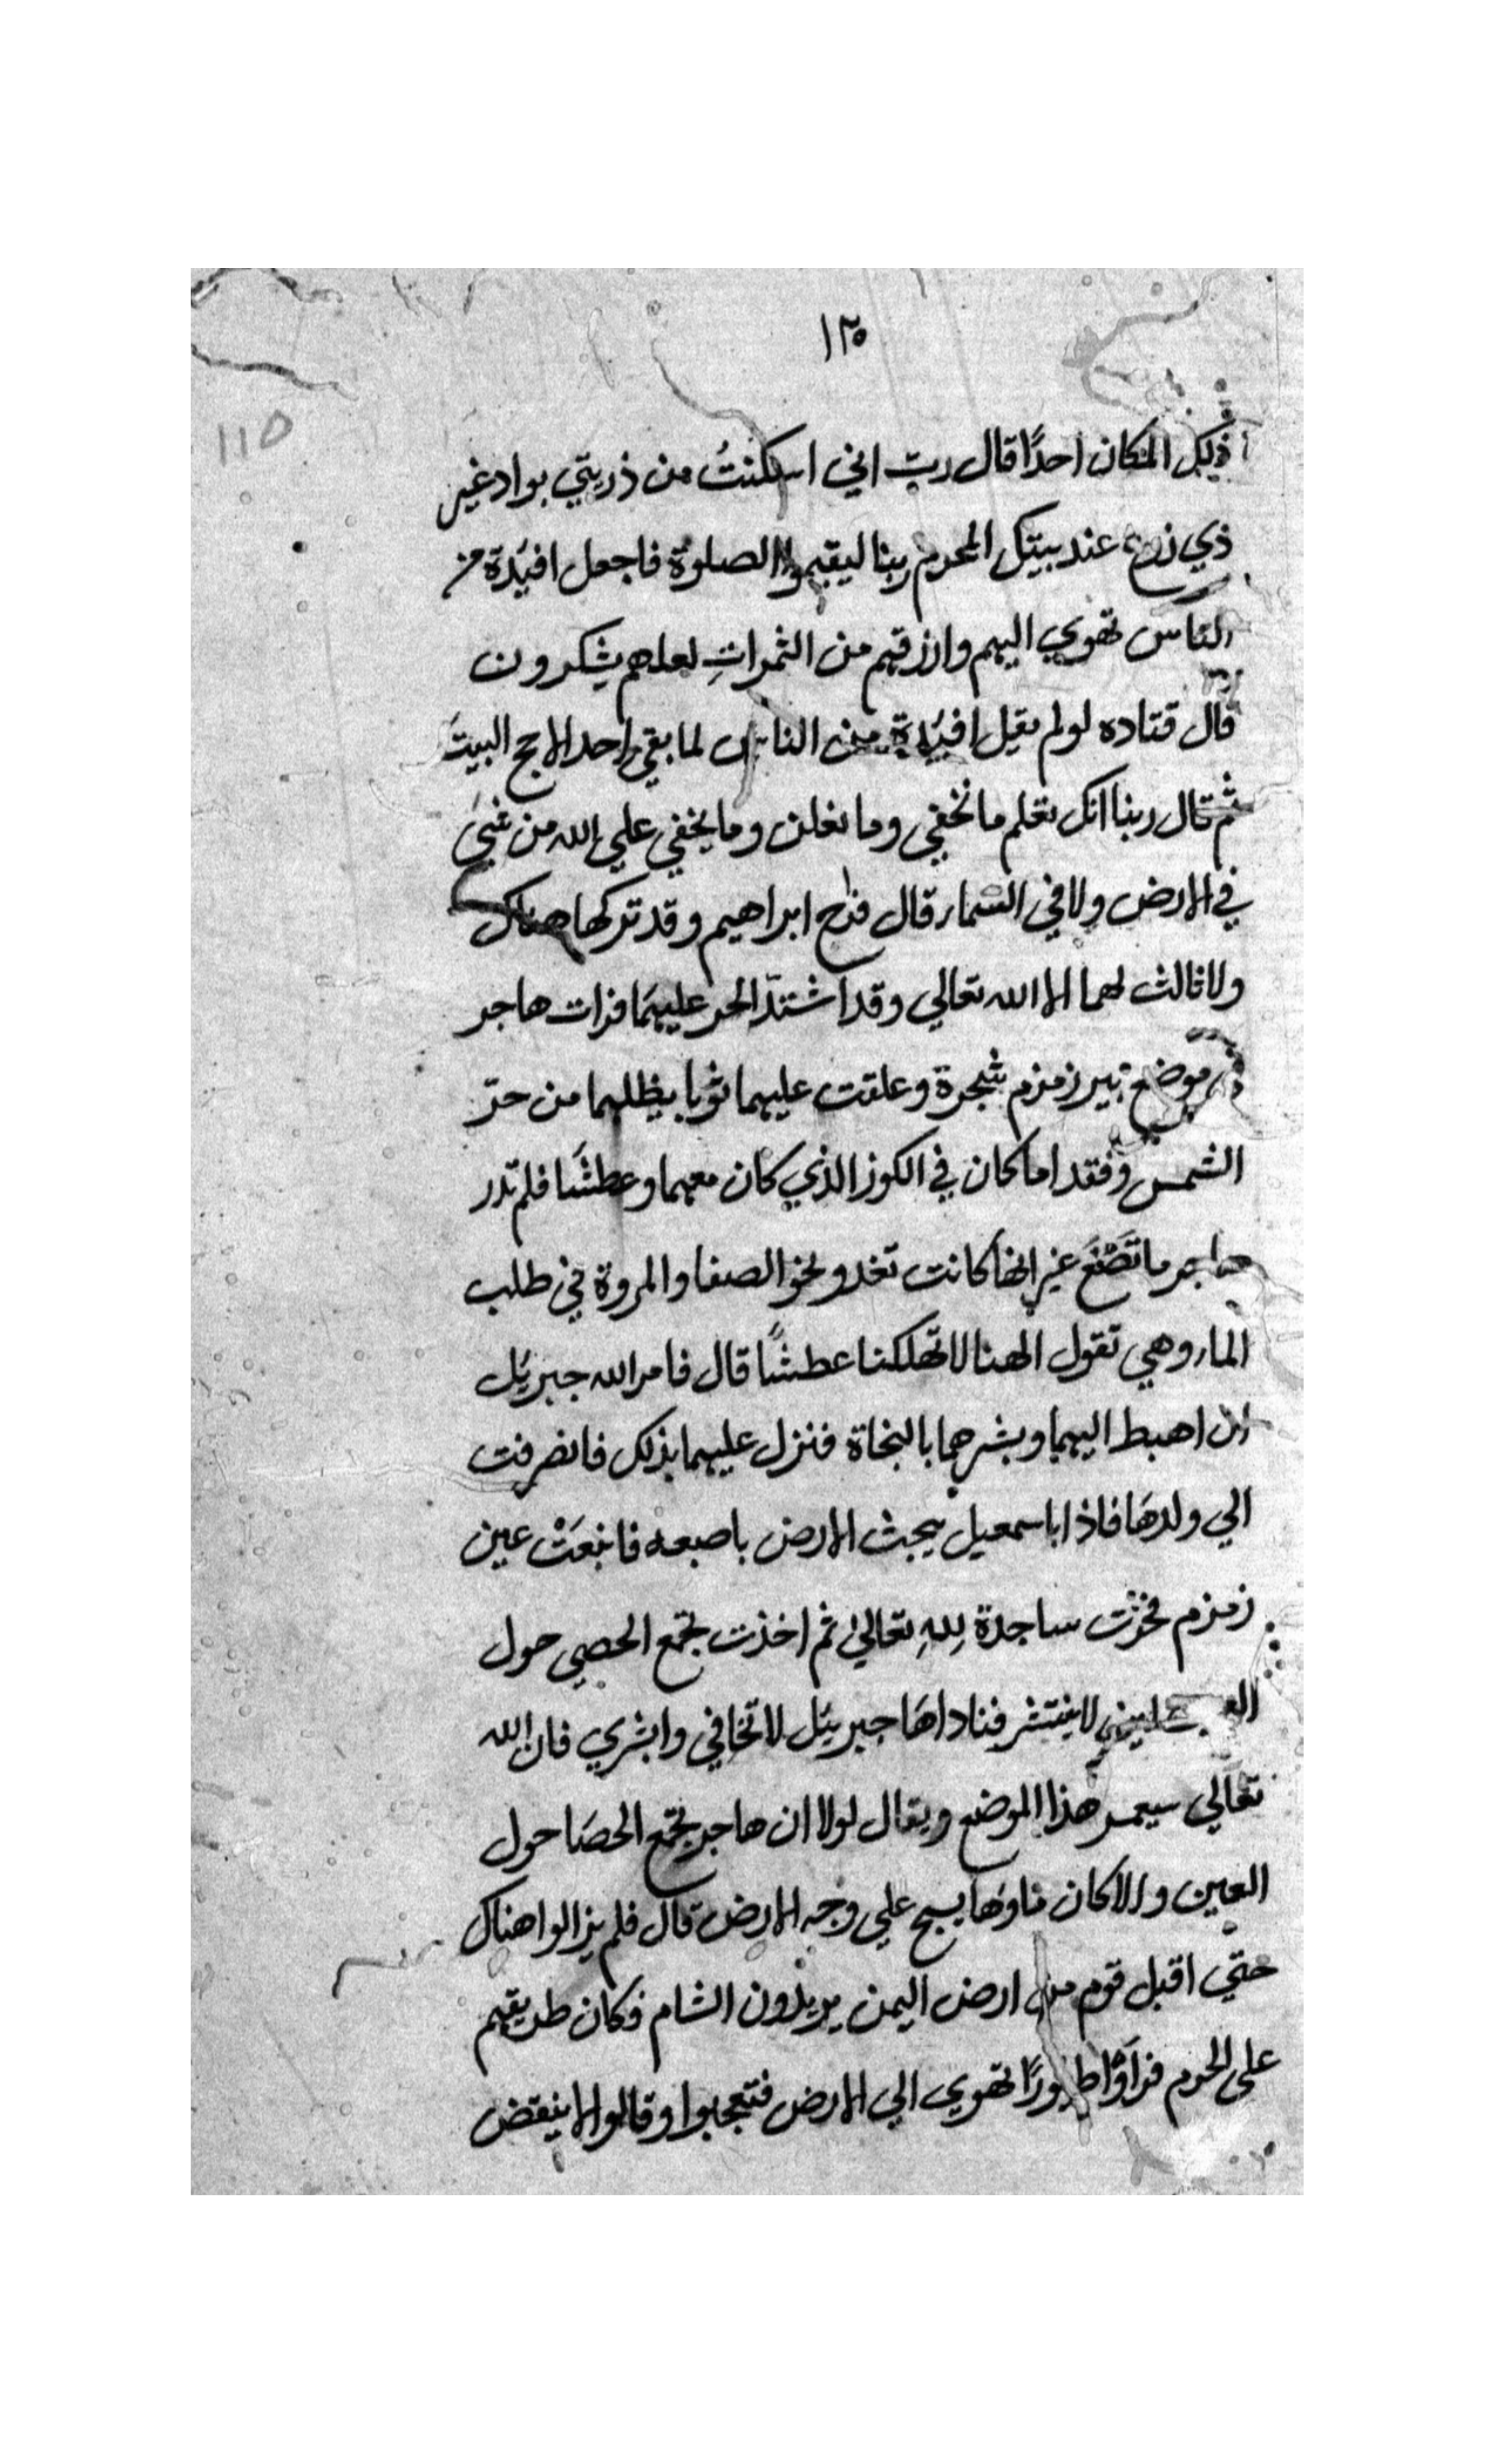 ١٢٥
115
ذلك المكان احدًا قال ربّ اني اسكنتُ من ذريتي بواد غير
ذي زرع عند بيتك المحرم ربنا ليقيموا الصلوة فاجعل افئدة من
الناس تهوي اليهم وارزقهم من الثمراتِ لعلهم يشكرون
قال قتاده لو لم يقيل افئدة من الناس لما بقي احد الا حج البيتَ
ثم قال ربنا انك تعلم ما نخفي وما نعلن وما يخفي علي الله من شيء
في الارض ولا في السماء قال فراح ابراهيم وقد تركها هناك
ولا ثالث لهما الا الله تعالي وقد اشتدّ الحر عليهمَا فرات هاجر
موضع بير زمزم شجرة وعلقت عليهما ثوبا يظلهما من حرّ
الشمس وفقدا ما كان في الكوز الذي كان معهما وعطشَا فلم تدر
هاجر ما تصْنَع غير انها كانت تغدو نحو الصفا والمروة في طلب
الماء وهي تقول الهنا لا تهلكنا عطشًا قال فامر الله جبريل
ان اهبط اليهما وبشرهما بالنجاة فنزل عليهما بذلك فانصرفت
الي ولدهَا فاذا باسمعيل يبحث الارض باصبعه فانبعَتْ عين
زمزم فخرّت ساجدة لِلهِ تعالي ثم اخذت تجمع الحصي حول
لا ينتشر فناداهَا جبرئيل لا تخافي وابشري فان الله
تعالي سيعمر هذا الموضع ويقال لولا ان هاجر تجمع الحصَا حول
العين والا كان ماوها يسيح علي وجه الارض قال فلم يزالوا هناك
حتي اقبل قوم من ارض اليمن يريدون الشام فكان طريقهم
على الحرم فرَاوْا طيورًا تهوي الي الارض فتعجبوا وقالوا لا ينقض